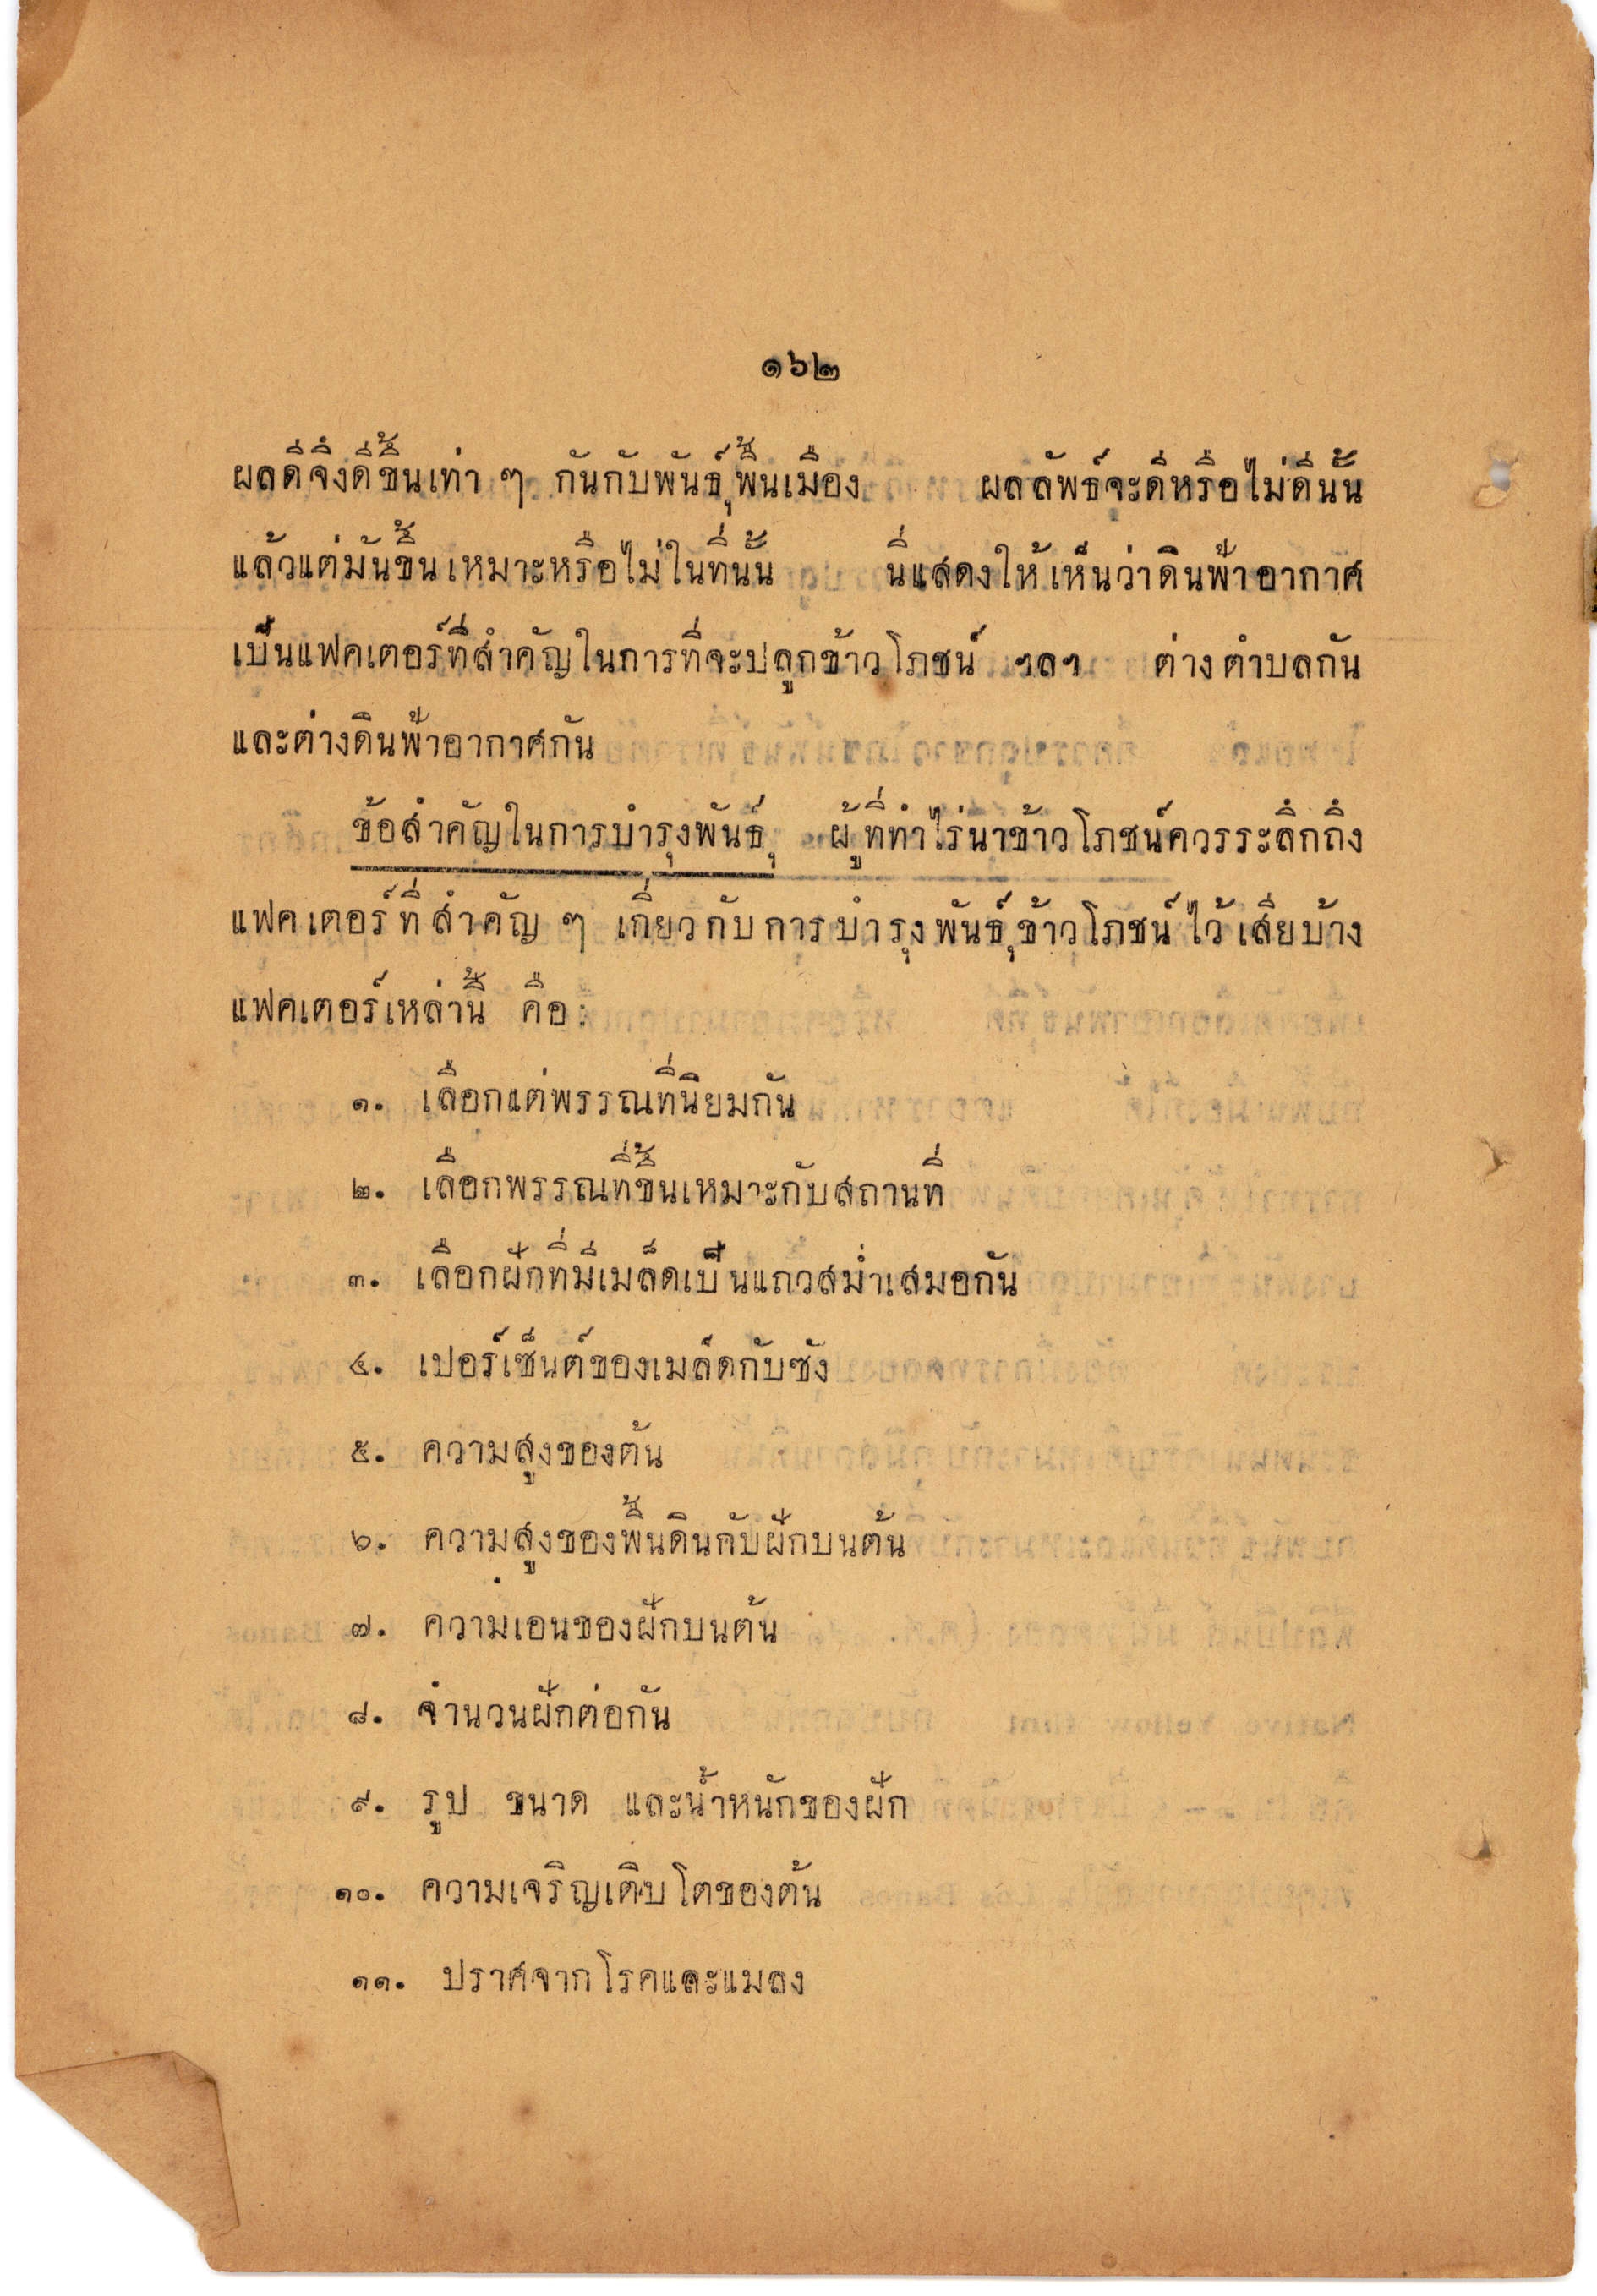 ๑๖๒
ผลดีจึงดีขึ้นเท่า ๆ กันกับพันธุ์พื้นเมือง ผลลัพธ์จะดีหรือไม่ดีนั้น
แล้วแต่มันขึ้นเหมาะหรือไม่ในที่นั้น นี่แสดงให้เห็นว่าดินฟ้าอากาศ
เป็นแฟคเตอร์ที่สำคัญในการที่จะปลูกข้าวโภชน์ ฯลฯ ต่างตำบลกัน
และต่างดินฟ้าอากาศกัน
ข้อสำคัญในการบำรุงพันธุ์ ผู้ที่ทำไร่นาข้าวโภชน์ควรระลึกถึง
แฟคเตอร์ที่สำคัญ ๆ เกี่ยวกับการบำรุงพันธุ์ข้าวโภชน์ไว้เสียบ้าง
แฟคเตอร์เหล่านี้ คือ:
๑. เลือกแต่พรรณที่นิยมกัน
๒. เลือกพรรณที่ขึ้นเหมาะกับสถานที่
๓. เลือกฝักที่มีเมล็ดเป็นแถวสม่ำเสมอกัน
๔. เปอร์เซ็นต์ของเมล็ดกับซัง
๕. ความสูงของต้น
๖. ความสูงของพื้นดินกับฝักบนต้น
๗. ความเอนของฝักบนต้น
๘. จำนวนฝักต่อกัน
๙. รูป ขนาด และน้ำหนักของฝัก
๑๐. ความเจริญเติบโตของต้น
๑๑. ปราศจากโรคและแมลง